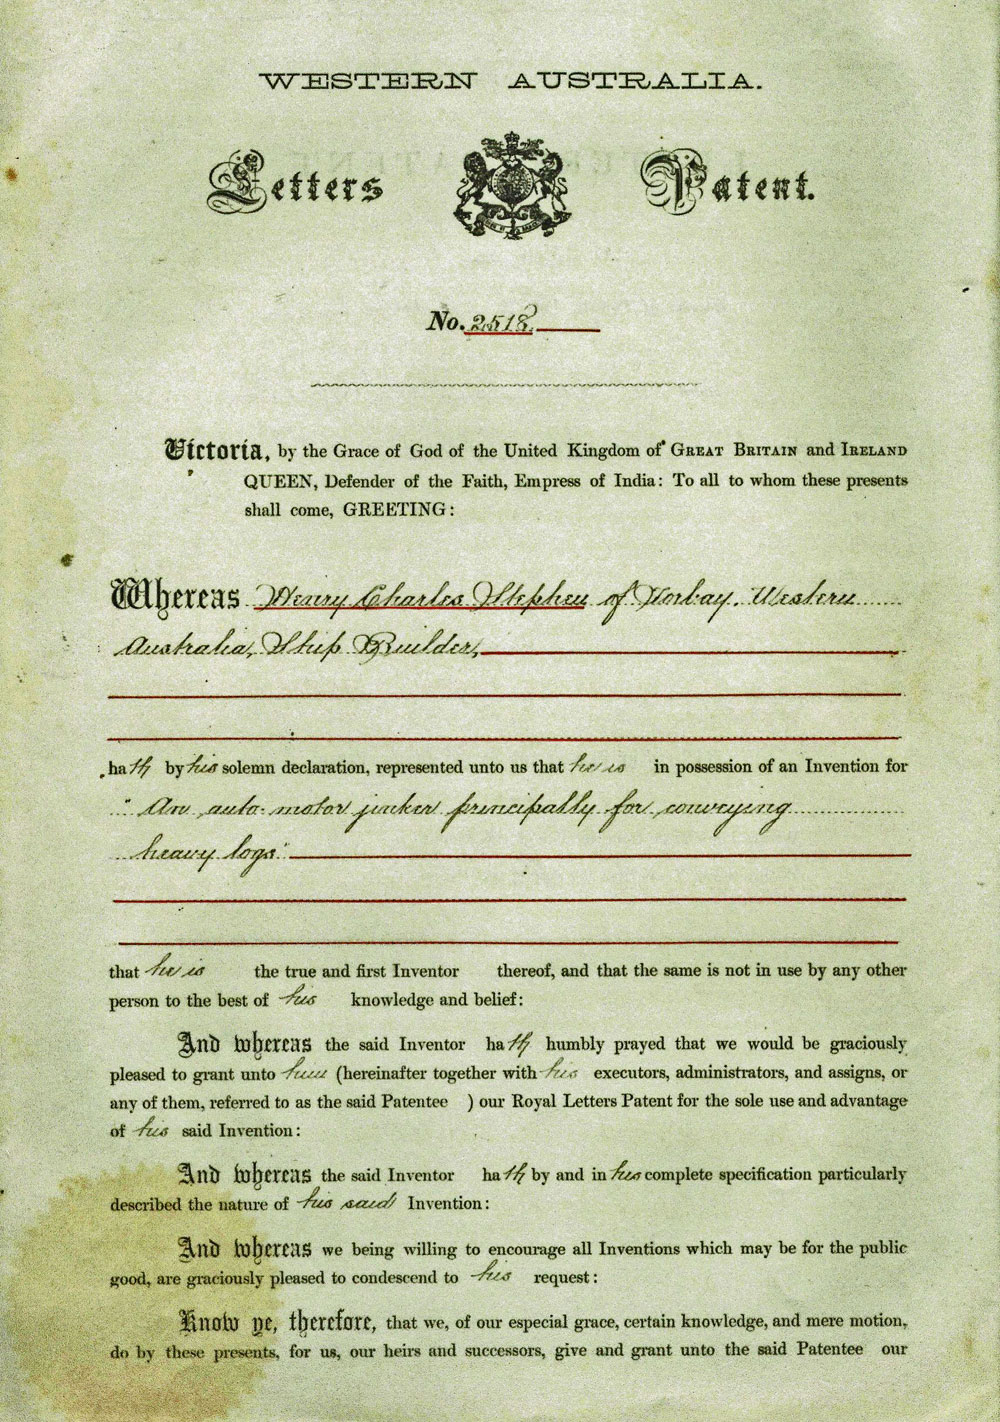 WESTERN AUSTRALIA.
Letters Patent.
No. 2518.
Victoria, by the Grace of God of the United Kingdom of GREAT BRITAIN and IRELAND
QUEEN, Defender of the Faith, Empress of India: To all to whom these presents
shall come, GREETING:
Whereas Henry Charles Stephen of Torbay. Western
Australia, Ship Builder,
hath by his solemn declaration, represented unto us that he is in possession of an Invention for
"An auto-motor jinker principally for conveying
heavy logs"
that he is the true and first Inventor thereof, and that the same is not in use by any other
person to the best of his knowledge and belief:
And whereas the said Inventor hath humbly prayed that we would be graciously
pleased to grant unto him (hereinafter together with his executors, administrators, and assigns, or
any of them, referred to as the said Patentee ) our Royal Letters Patent for the sole use and advantage
of his said Invention:
And whereas the said Inventor hath by and in his complete specification particularly
described the nature of his said Invention:
And whereas we being willing to encourage all Inventions which may be for the public
good, are graciously pleased to condescend to his request:
Know ye, therefore, that we, of our especial grace, certain knowledge, and mere motion,
do by these presents, for us, our heirs and successors, give and grant unto the said Patentee our